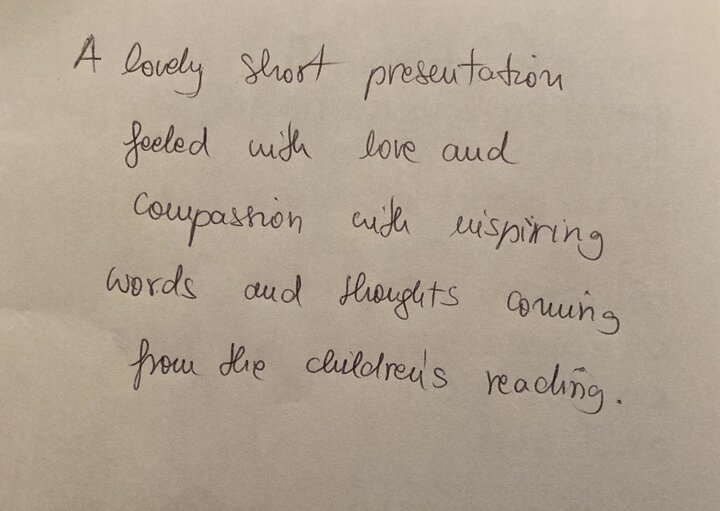 A lovely short presentation
feeled with love and
compassion with inspiring
words and thoughts coming
from the children's reading.